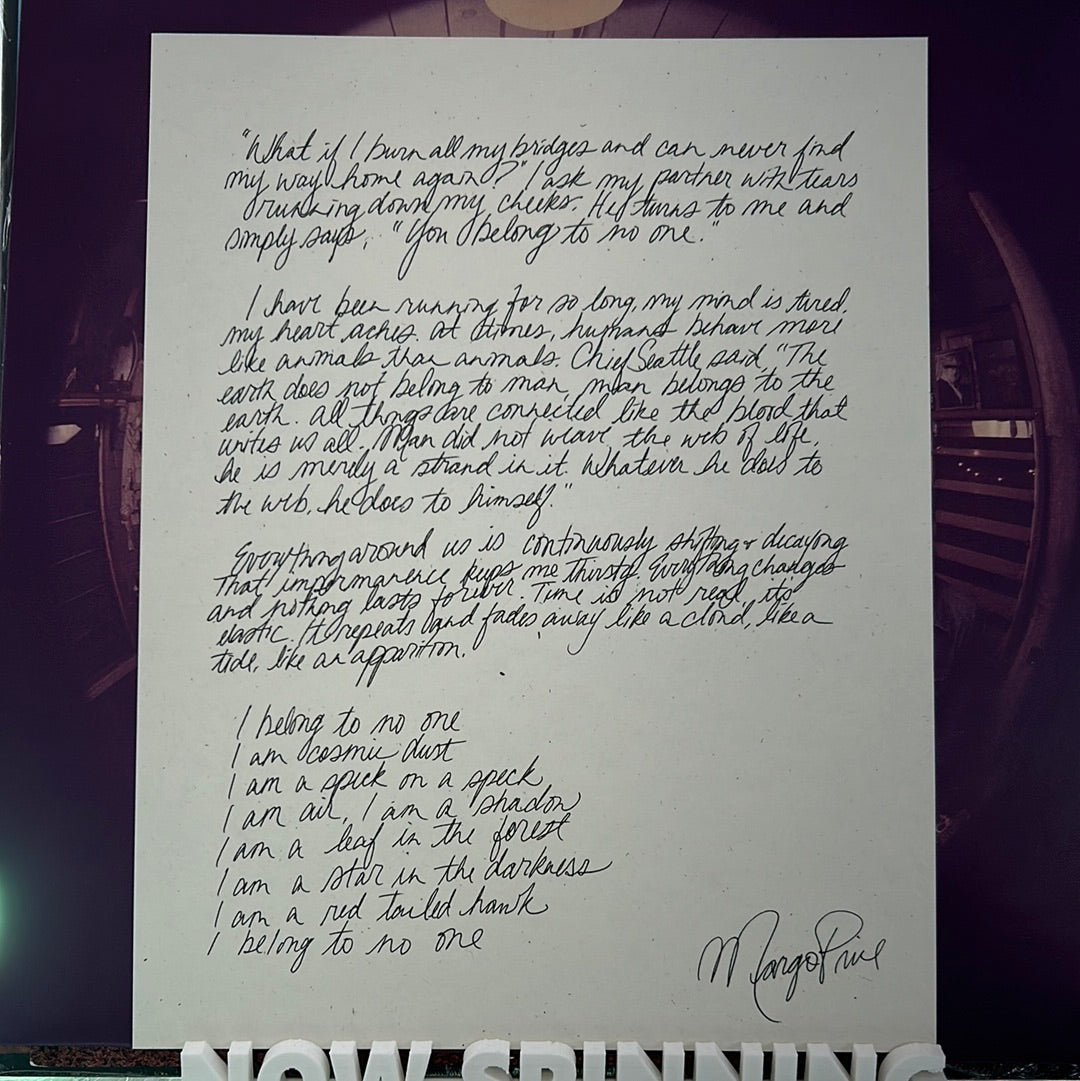 "What if I burn all my bridges and can never find
my way home again?" I ask my partner with tears
running down my cheeks. He turns to me and
simply says, "You belong to no one."
I have been running for so long, my mind is tired,
my heart aches. At times, humans behave more
like animals than animals. Chief Seattle said, "The
earth does not belong to man, man belongs to the
earth. All things are connected like the blood that
unites us all. Man did not weave the web of life,
he is merely a strand in it. Whatever he does to
the web, he does to himself."
Everything around us is continuously shifting & decaying
That impermanence keeps me thirsty. Everything changes
and nothing lasts forever. Time is not real, its
elastic. It repeats and fades away like a cloud, like a
tide, like an apparition.
I belong to no one
I am cosmic dust
I am a speck on a speck
I am air, I am a shadow
I am a leaf in the forest
I am a star in the darkness
I am a red tailed hawk
I belong to no one
Margo Price
NOW SPINNING